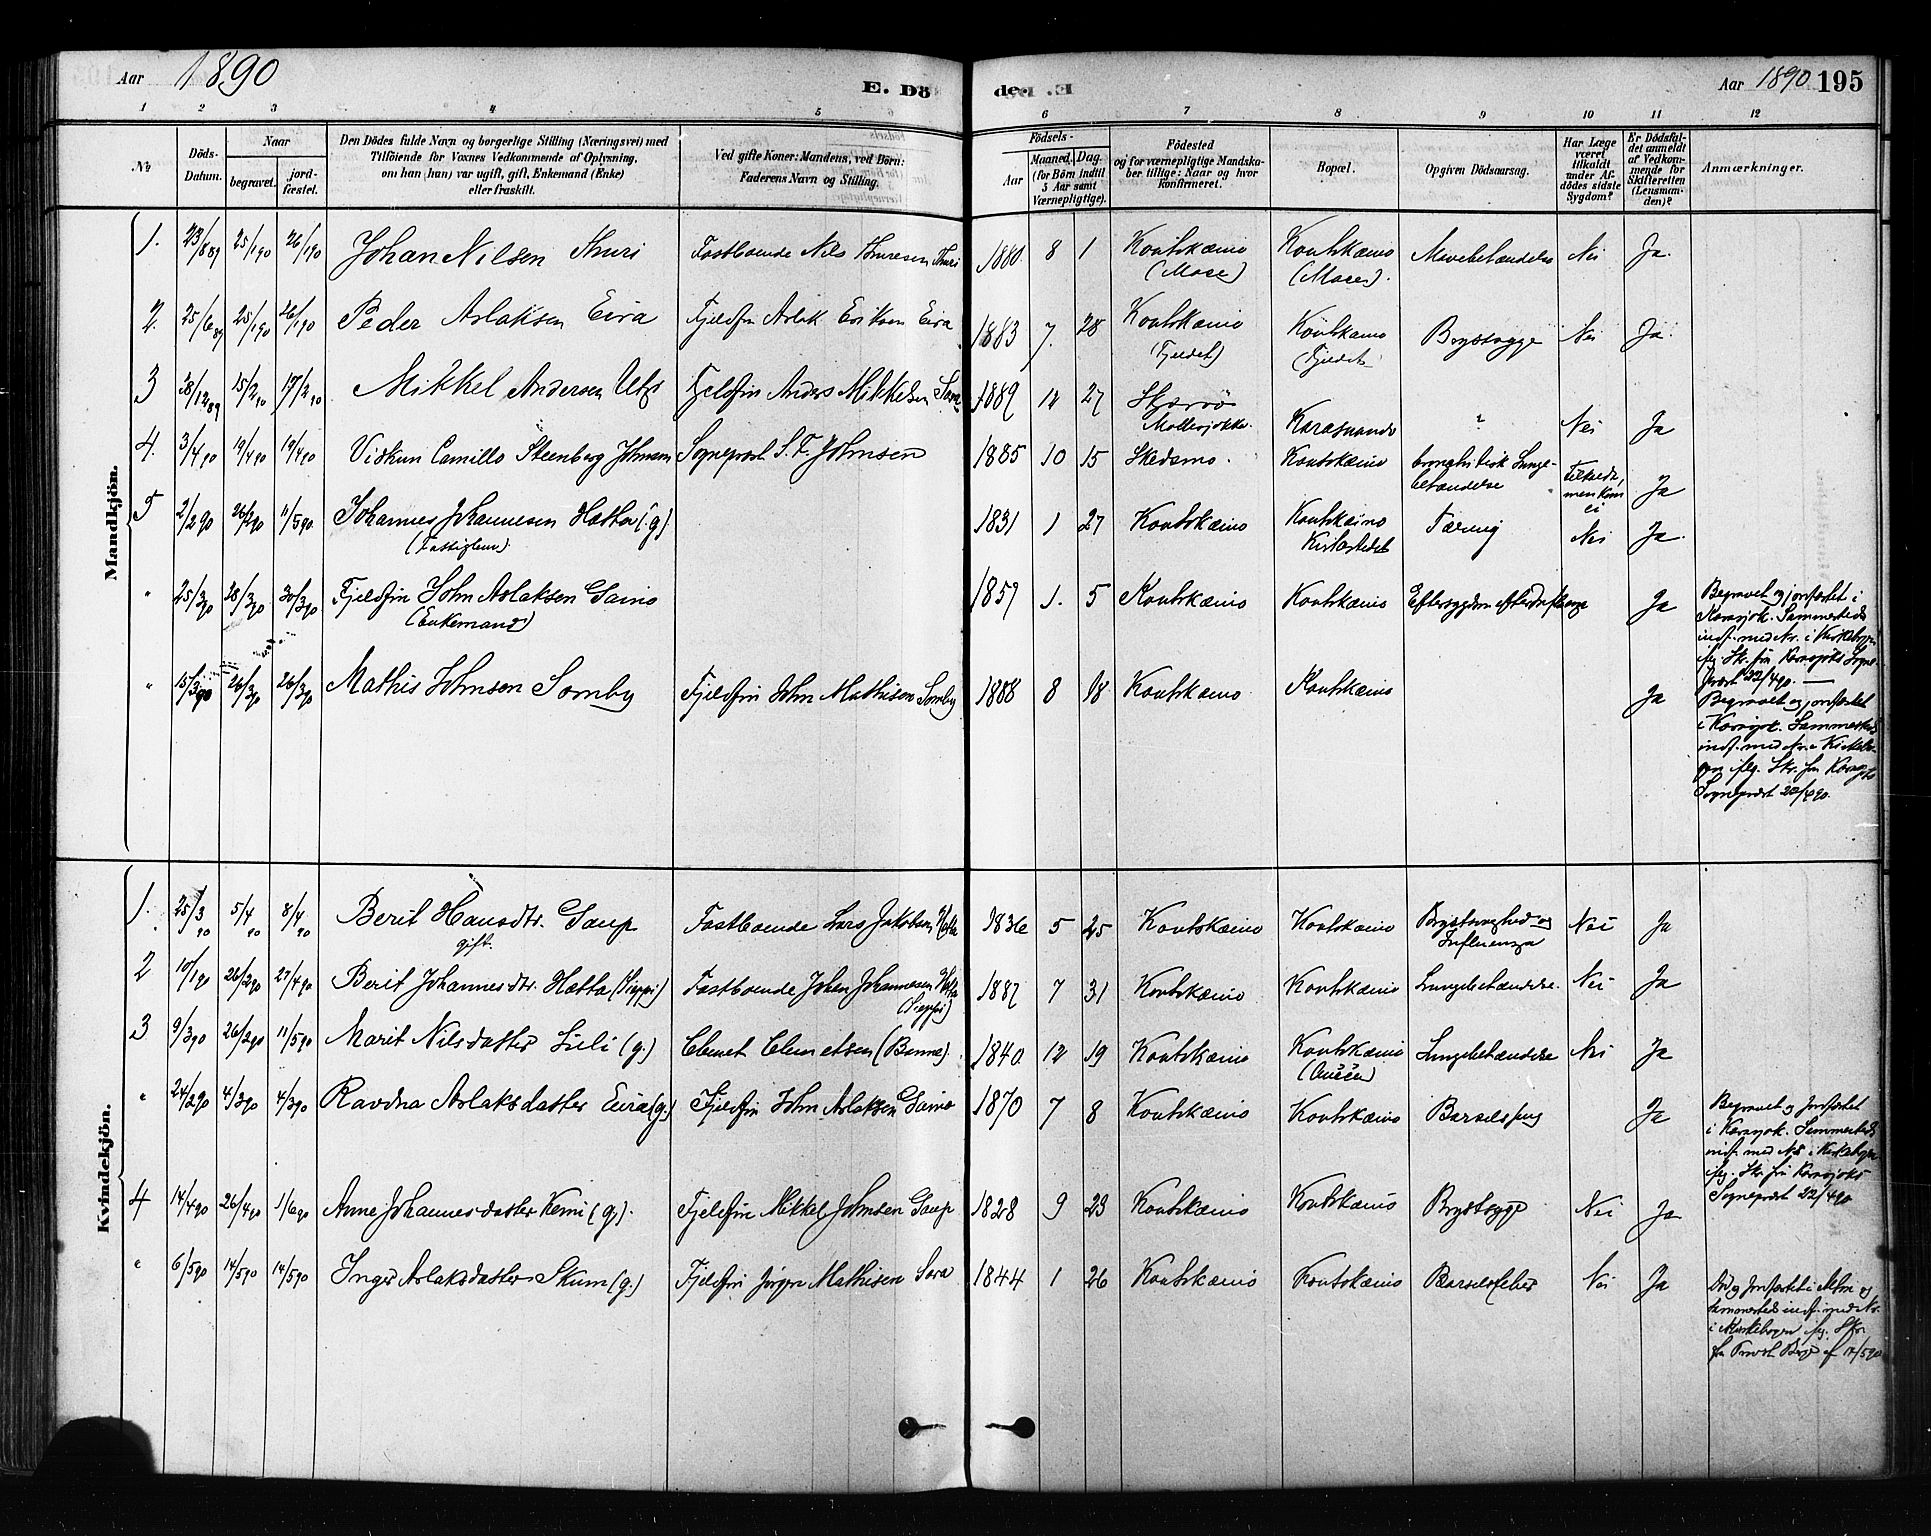 Aar 1890 E. Dö
den. E. Aar 1890 195
1 2 3 4 5 6 7 8 9 10 11 12
No.
Döds-Datum.
Naar
begravet. jord-fæstet.
Den Dödes fulde Navn og borgerlige Stilling (Næringsvei) med
Tilföiende for Voxnes Vedkommende af Oplysning,
om han (hun) var ugift, gift, Enkemand (Enke)
eller fraskilt.
Ved gifte Koner: Mandens, ved Börn:
Faderens Navn og Stilling.
Födsels-
Aar Maaned. Dag.
(for Börn indtil
5 Aar samt
Værnepligtige).
Födested
og for værnepligtige Mandska-
ber tillige: Naar og hvor
konfirmeret.
Bopæl.
Opgiven Dödsaarsag.
Har Læge
været
tilkaldt
under Af-
dödes sidste
Sygdom?
Er Dödsfal-
det anmeldt
af Vedkom-
mende for
Skifteretten
(Lensman-
den)?
Anmærkninger.
Mandkjön.
1. 23/8 89 25/1 90 26/1 90 Johan Nilsen Thuri Fastboende Nils Thuresen Thuri 1880 8 1 Koutokæino (Mase) Koutokæino (Mase) Mavebetændelse Nei Ja.
2. 25/6 89 25/1 90 26/1 90 Peder Aslaksen Eira Fjeldfin Aslak Eriksen Eira 1883 7. 28 Koutokæino (Fjeldet) Koutokæino (Fjeldet) Brystsyge Nei Ja.
3 28/12 89 15/2 90 17/2 90 Mikkel Andersen Utsi Fjeldfin Anders Mikkelsen 1889 12 27 Stjernö Mollesjokka Karasuando " Nei Ja
4. 3/4 90 19/4 90 19/4 90 Vidkun Camillo Steenberg Johnsen Sogneprest S. F. Johnsen 1885 10 15 Skedsmo. Koutokæino bronchitisk Lunge-
betændelse Tilkaldt, men kom ei Ja
5 2/2 90 26/2 90 11/5 90 Johannes Johannesen Hætta (g)
(Fattiglem) 1831 1 27 Koutokæino Koutokæino Kirkestedet Tæring Nei Ja.
" 25/3 90 28/3 90 30/3 90 Fjeldfin John Aslaksen Gaino
(Enkemand) 1857 1. 5 Koutokæino Koutokæino Eftersygdom efter Influenza Ja Begravet og jordfæstet i
Karasjok. Sammesteds
indf. med Nr. i Kirkebogen
flg. Skr. fra Karasjoks Sogne-
præst 22/4 90.
" 15/3 90 26/3 90 26/3 90 Mathis Johnsen Somby Fjeldfin John Mathisen Somby 1888 8 18 Koutokæino Koutokæino Ja Begravet og jordfæstet
i Karasjok. Sammesteds
indf. med Nr. i Kirkebo-
gen iflg. Skr. fra Karasjoks
Sognepræst 22/4 90.
Kvindekjön.
1. 25/3 90 5/4 90 8/4 90 Berit Hansdtr. Gaup
gift. Fastboende Lars Jakobsen Hætta 1836 5 25 Koutokæino Koutokæino Brystsyghed og
Influenza Nei Ja
2 10/1 90 26/2 90 27/4 90 Berit Johannesdtr. Hætta (Sieppi) Fastboende Johan Johannesen Hætta
(Sieppi) 1887 7 31 Koutokæino Koutokæino Lungebetændelse. Nei Ja
3 9/3 90 26/3 90 11/5 90 Marit Nilsdatter Siili (g.) Clemet Clemetsen (Banne). 1840 12 19 Koutokæino Koutokæino Lungebetændelse Nei Ja
" 24/2 90 4/3 90 4/3 90 Ravdna Aslaksdatter Eira (g.) Fjeldfin John Aslaksen Gaino 1870 7 8 Koutokæino Koutokæino Barselseng Ja Begravet og Jordfæstet
i Karasjok. Sammesteds
indf. med No i Kirkebogen
flg. Skr. fra Karasjoks
Sognepræst 22/4 90
4 14/4 90 26/4 90 1/6 90 Anne Johannesdatter Kemi (g). Fjeldfin Mikkel Johnsen Gaup 1828 9 23 Koutokæino Koutokæino Brystsyge Nei Ja
" 6/5 90 14/5 90 14/5 90 Inger Aslaksdatter Skum (g.) Fjeldfin Jörgen Mathisen Sara 1844 1 26 Koutokæino Koutokæino Barselfeber Nei Ja Död og Jordfæstet i Alten og
sammesteds indf. med No.
i Kirkebogen flg. Skr.
fra Provst Berg af 14/5 90